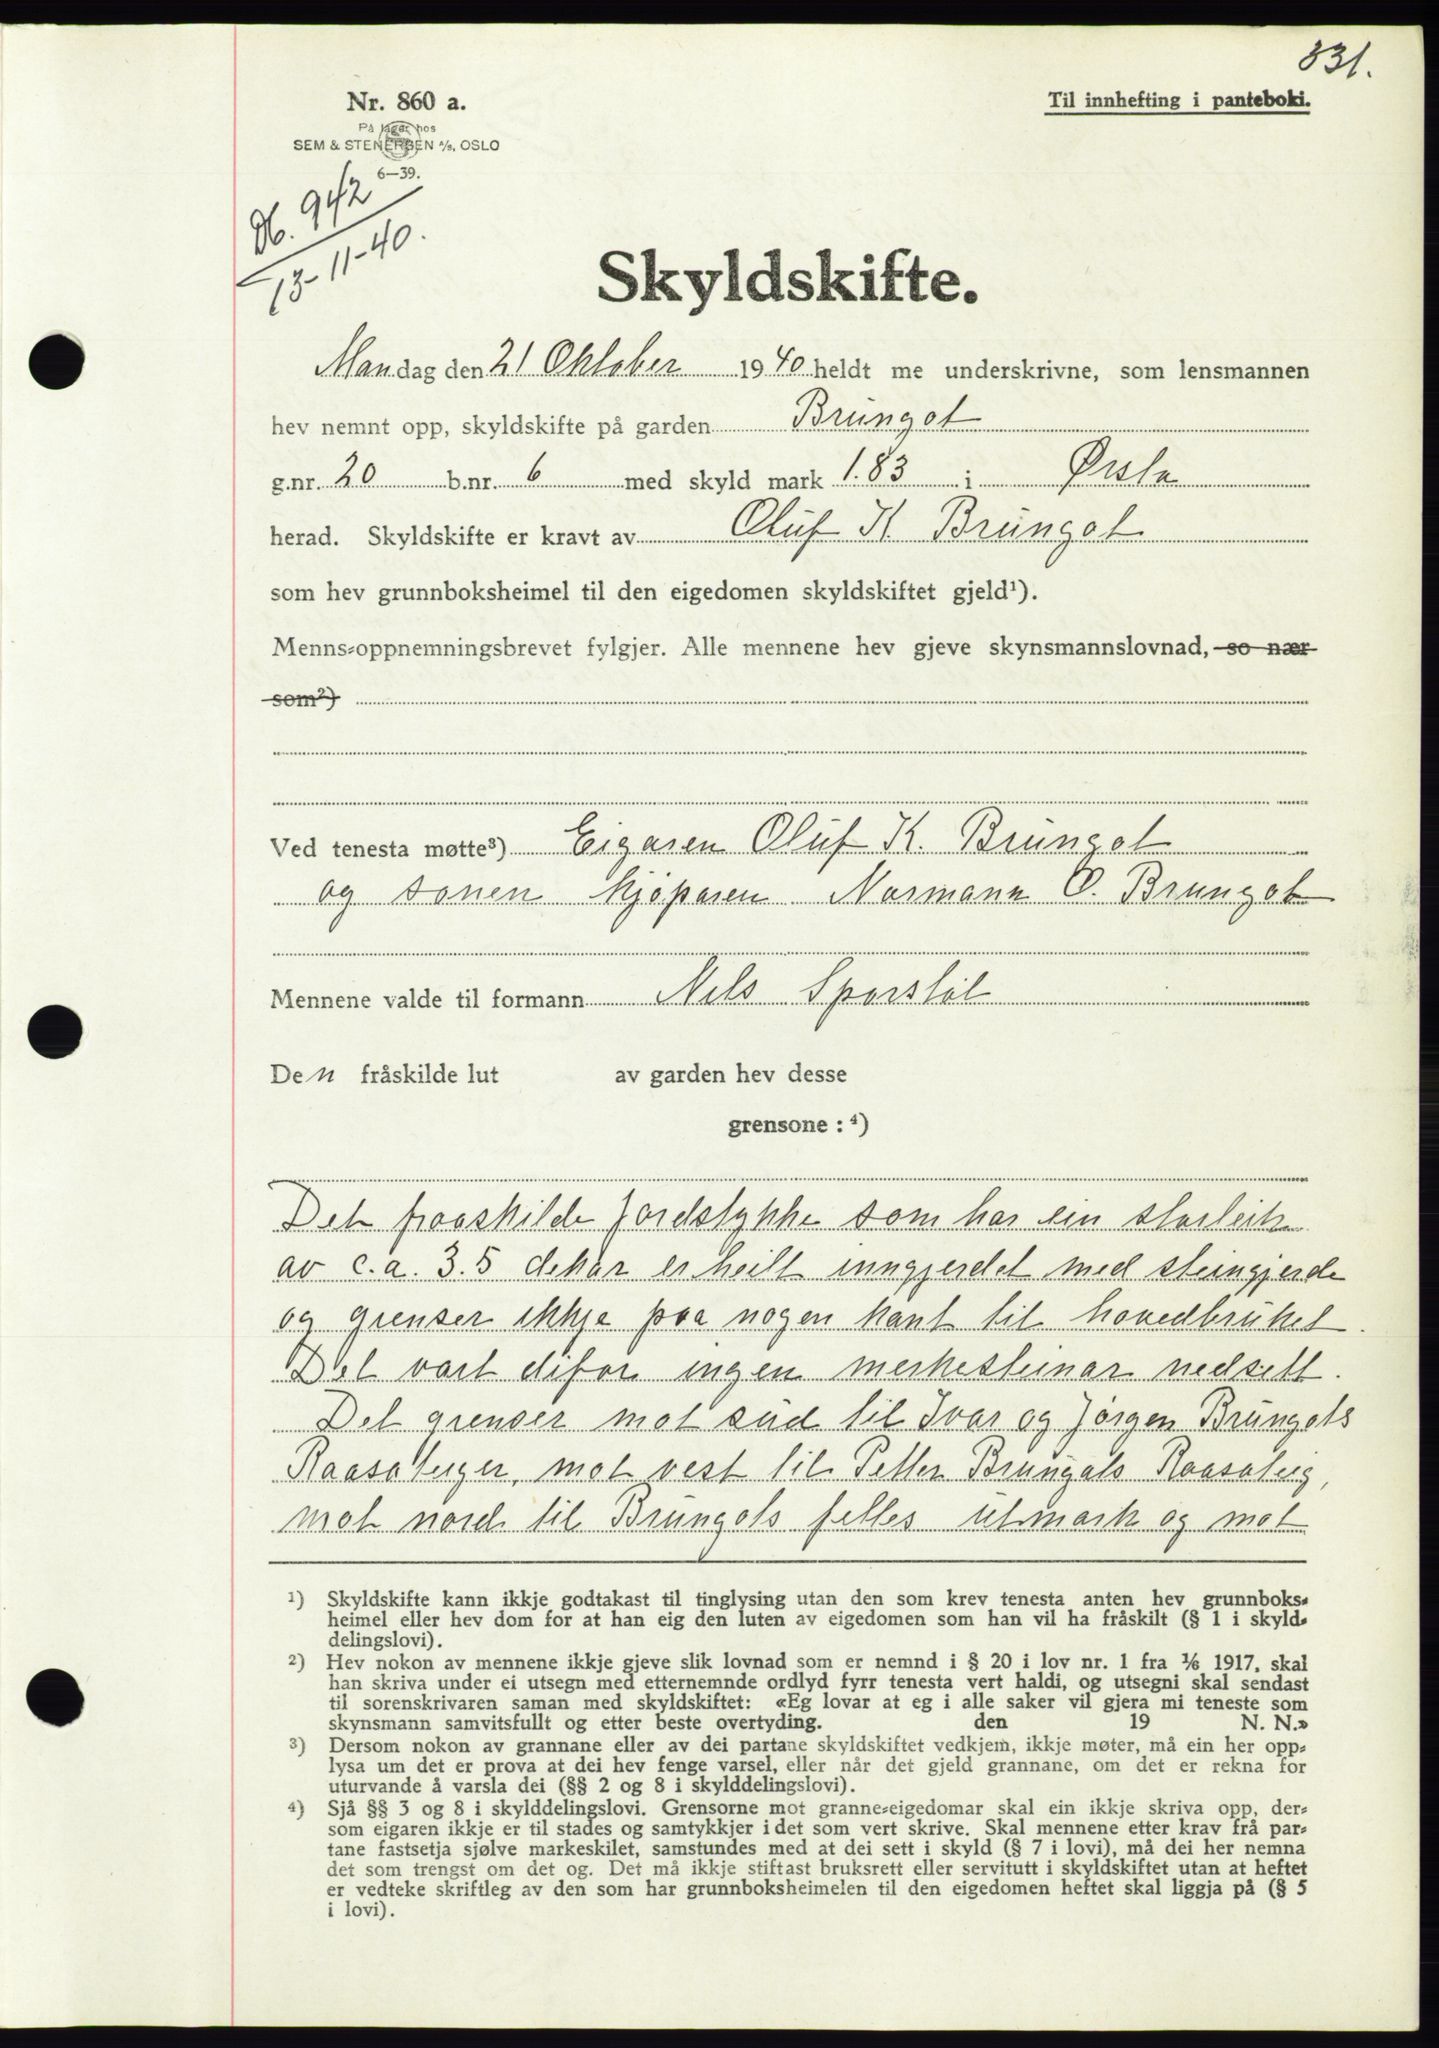 331.
Nr. 860 a.
Til innhefting i panteboki.
På lager hos
SEM & STENERSEN A/S, OSLO
6—39.
Db. 942
13-11-40.
Skyldskifte.
Mandag den 21 Oktober 1940 heldt me underskrivne, som lensmannen
hev nemnt opp, skyldskifte på garden Brungot
g.nr. 20 b.nr. 6 med skyld mark 1.83 i Ørsta
herad. Skyldskifte er kravt av Oluf K. Brungot
som hev grunnboksheimel til den eigedomen skyldskiftet gjeld¹).
Menns-oppnemningsbrevet fylgjer. Alle mennene hev gjeve skynsmannslovnad, so nær
som²)
Ved tenesta møtte³) Eigaren Oluf K. Brungot
og sonen kjøparen Normann O. Brungot
Mennene valde til formann Nils Sporstøl
Den fråskilde lut av garden hev desse
grensone : ⁴)
Det fraaskilde Jordstykke som har ein storleik
av c.a. 3.5 dekar er heilt inngjerdet med steingjerde
og grenser ikkje paa nogen kant til hovedbruket.
Det vart difor ingen merkesteinar nedsett.
Det grenser mot sud til Ivar og Jørgen Brungots
Raasateiger, mot vest til Petter Brungots Raasateig,
mot nord til Brungots felles utmark og mot
¹) Skyldskifte kann ikkje godtakast til tinglysing utan den som krev tenesta anten hev grunnboks-
heimel eller hev dom for at han eig den luten av eigedomen som han vil ha fråskilt (§ 1 i skyld-
delingslovi).
²) Hev nokon av mennene ikkje gjeve slik lovnad som er nemnd i § 20 i lov nr. 1 fra 1/6 1917, skal
han skriva under ei utsegn med etternemnde ordlyd fyrr tenesta vert haldi, og utsegni skal sendast
til sorenskrivaren saman med skyldskiftet: «Eg lovar at eg i alle saker vil gjera mi teneste som
skynsmann samvitsfullt og etter beste overtyding. den 19 N. N.»
³) Dersom nokon av grannane eller av dei partane skyldskiftet vedkjem, ikkje møter, må ein her opp-
lysa um det er prova at dei hev fenge varsel, eller når det gjeld grannane, om det er rekna for
uturvande å varsla dei (§§ 2 og 8 i skylddelingslovi).
⁴) Sjå §§ 3 og 8 i skylddelingslovi. Grensorne mot granne-eigedomar skal ein ikkje skriva opp, der-
som eigaren ikkje er til stades og samtykkjer i det som vert skrive. Skal mennene etter krav frå par-
tane fastsetja sjølve markeskilet, samstundes med at dei sett i skyld (§ 7 i lovi), må dei her nemna
det som trengst om det og. Det må ikkje stiftast bruksrett eller servitutt i skyldskiftet utan at heftet
er vedteke skriftleg av den som har grunnboksheimelen til den eigedomen heftet skal liggja på (§ 5
i lovi).